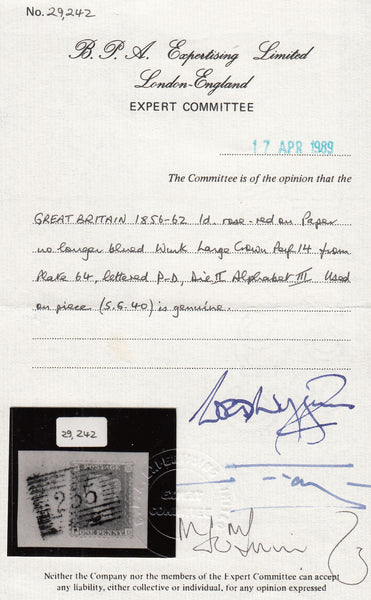 No. 29,242
B. P. A. Expertising Limited
London-England
EXPERT COMMITTEE
17 APR 1989
The Committee is of the opinion that the
GREAT BRITAIN 1856-62 1d. rose-red on Paper
no longer blued Wmk Large Crown Perf 14 from
Plate 64, lettered P-D, Die II Alphabet III Used
on piece (S.G.40) is genuine.
29,242
POSTAGE
ONE PENNY
EXPERT
COMMITTEE
Neither the Company nor the members of the Expert Committee can accept
any liability, either collective or individual, for any opinion expressed